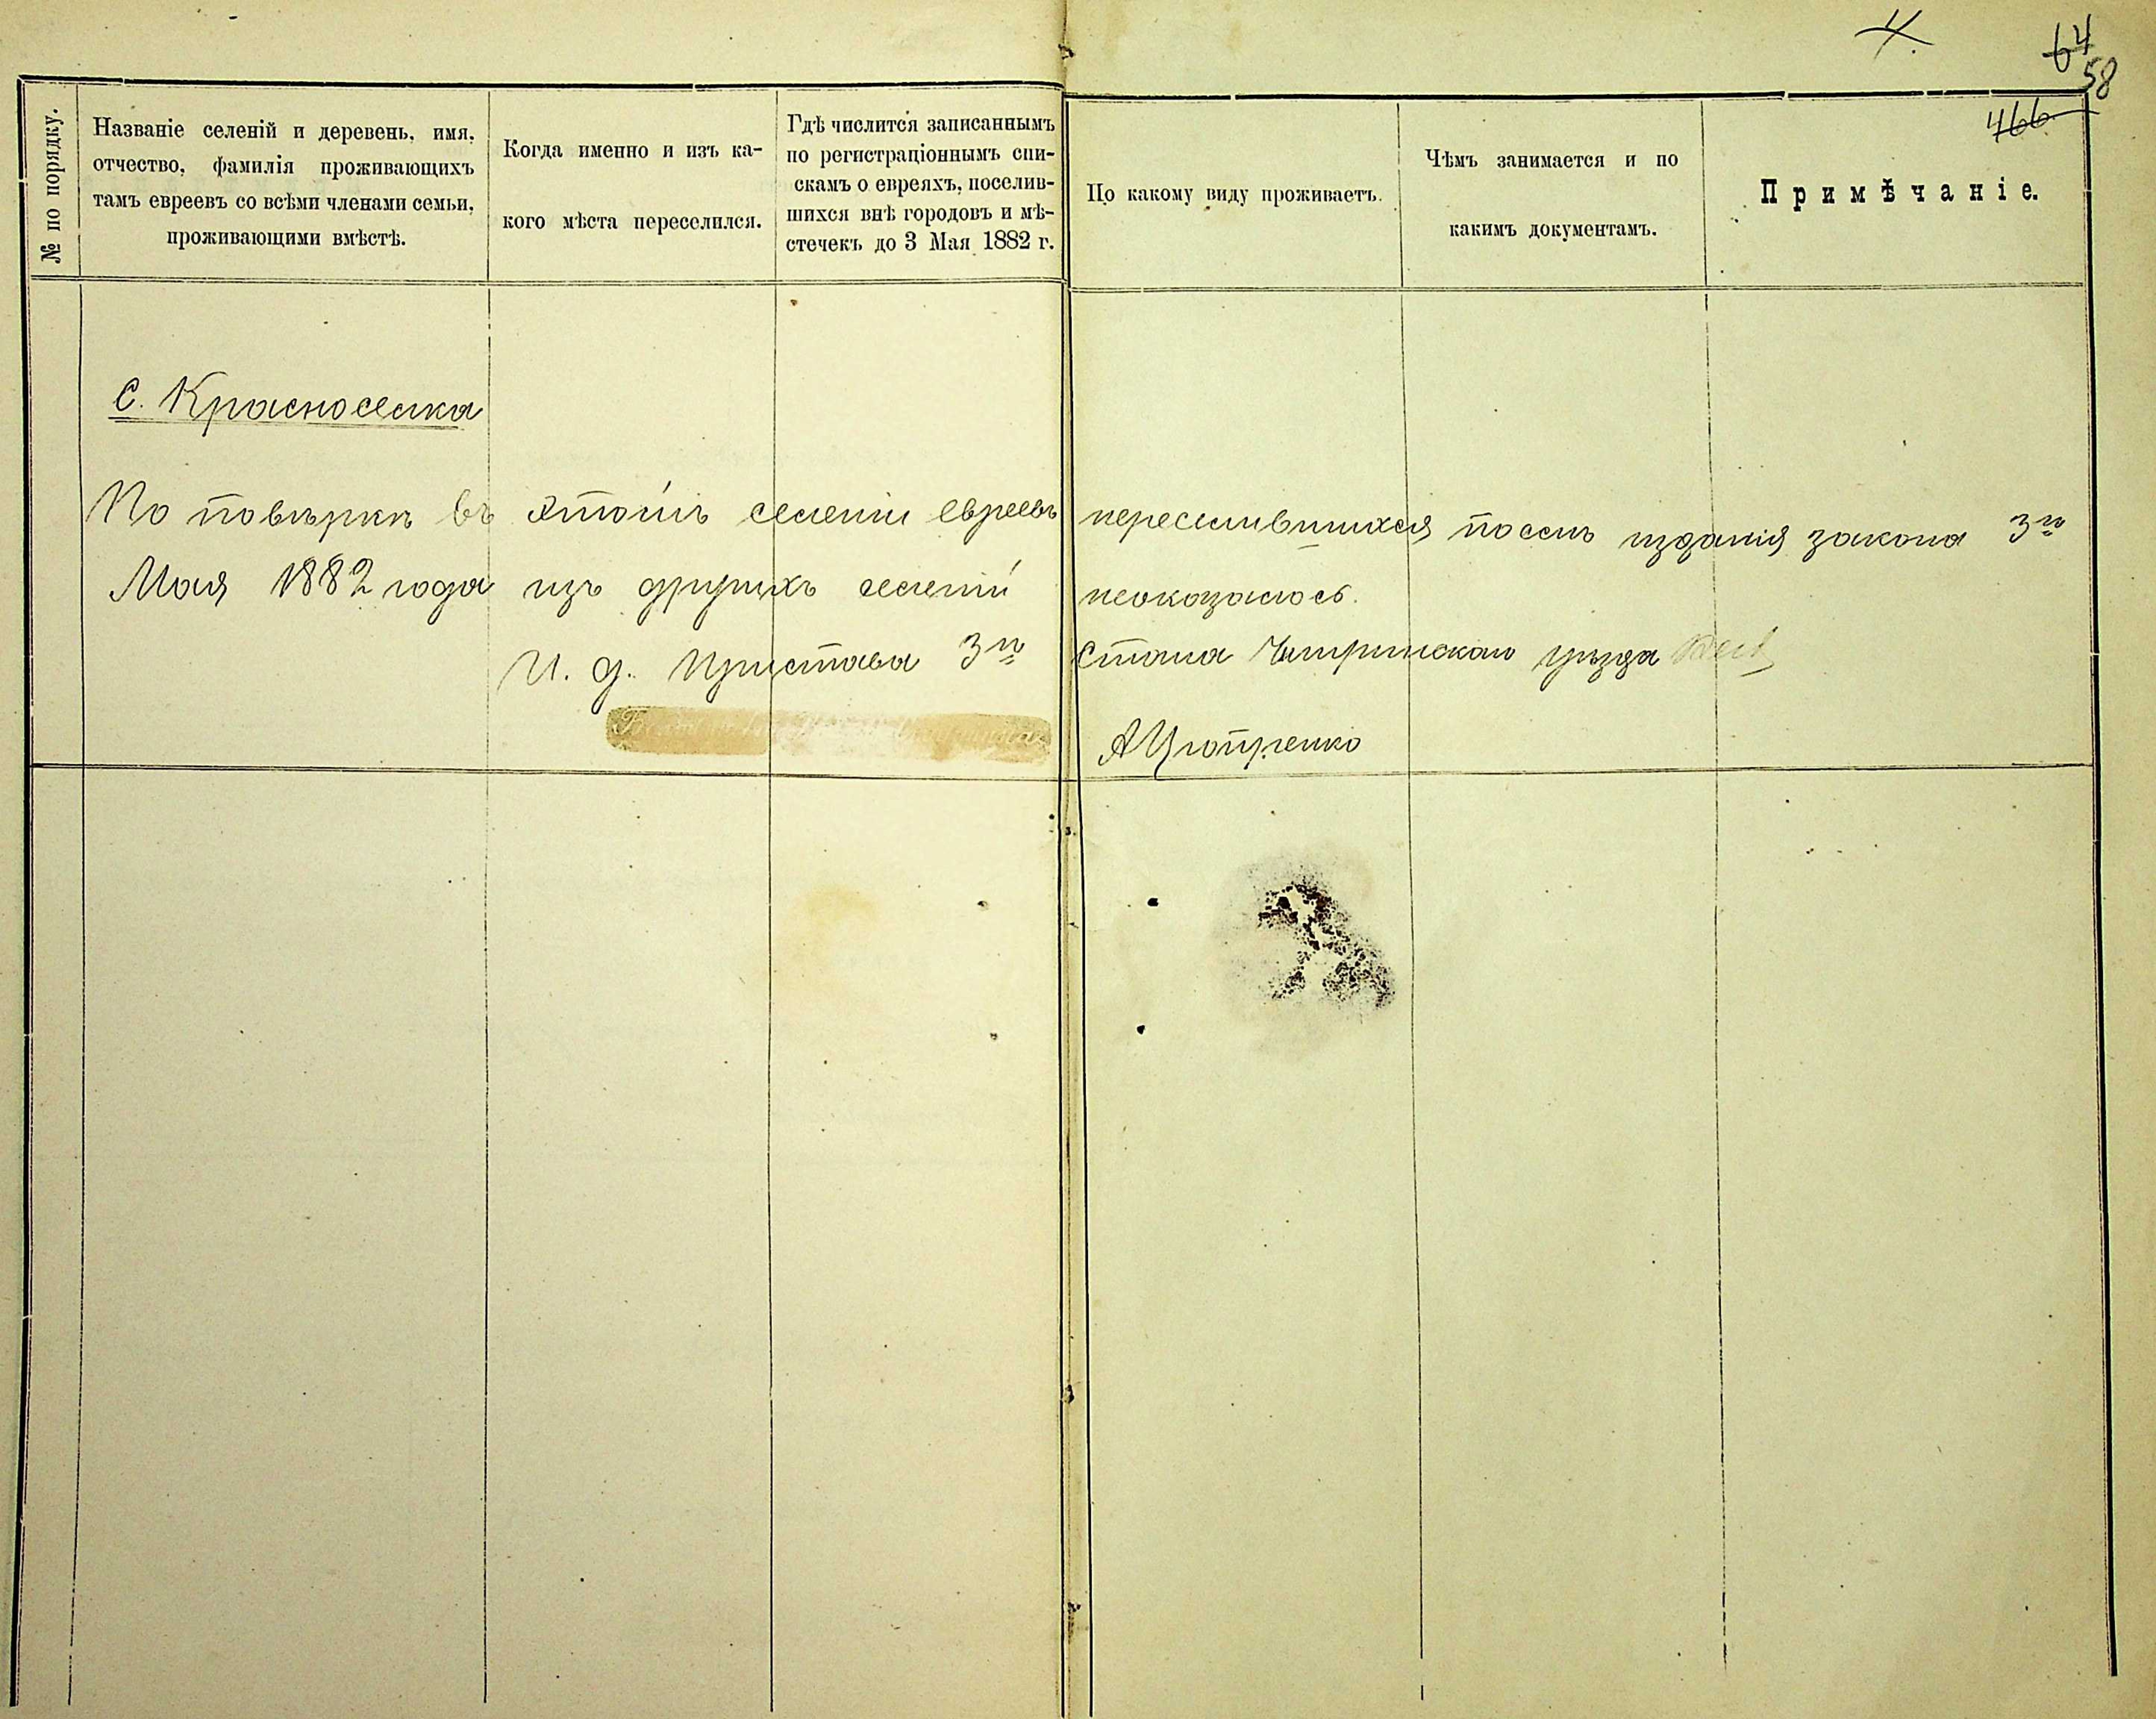 64
58
466
№ по порядку.
Названіе селеній и деревень, имя,
отчество, фамилія проживающихъ
тамъ евреевъ со всѣми членами семьи,
проживающими вмѣстѣ.
Когда именно и изъ ка-
кого мѣста переселился.
Гдѣ числится записаннымъ
по регистраціоннымъ спи-
скамъ о евреяхъ, поселив-
шихся внѣ городовъ и мѣ-
стечекъ до 3 Мая 1882 г.
По какому виду проживаетъ.
Чѣмъ занимается и по
какимъ документамъ.
Примѣчаніе.
С. Красноселка
По повѣркѣ въ этомъ селеніи евреевъ переселившихся послѣ изданія закона 3го
Мая 1882 года изъ другихъ селеній неоказалось.
И. д. Пристава 3го стана Чигиринскаго уѣзда